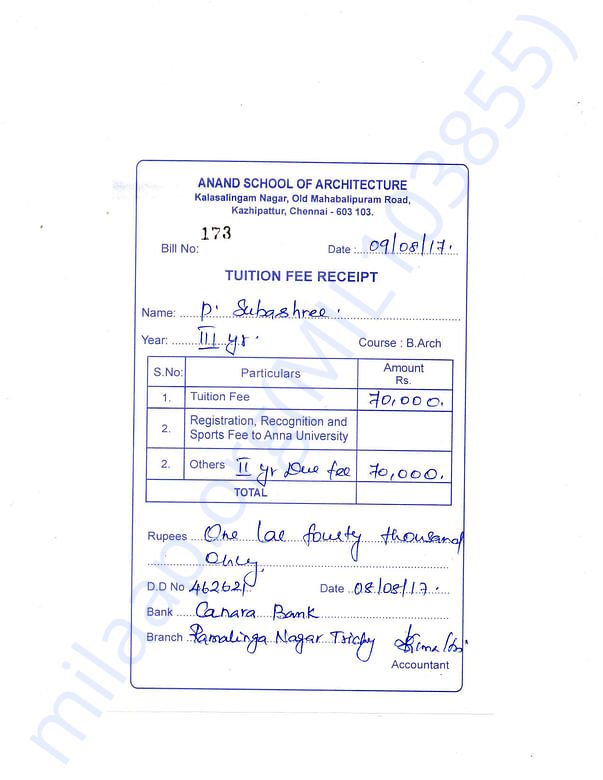 ANAND SCHOOL OF ARCHITECTURE
Kalasalingam Nagar, Old Mahabalipuram Road,
Kazhipattur, Chennai - 603 103.
Bill No: 173 Date : 09/08/17.
TUITION FEE RECEIPT
Name: P. Subashree.
Year: III yr. Course : B.Arch
S.No: Particulars Amount Rs.
1. Tuition Fee 70,000.
2. Registration, Recognition and
Sports Fee to Anna University
2. Others II yr Due fee 70,000.
TOTAL
Rupees One lac fourty thousand
Only.
D.D No 462621 Date 08/08/17.
Bank Canara Bank
Branch Ramalinga Nagar Trichy
Accountant
milaap.org(MIL103855)